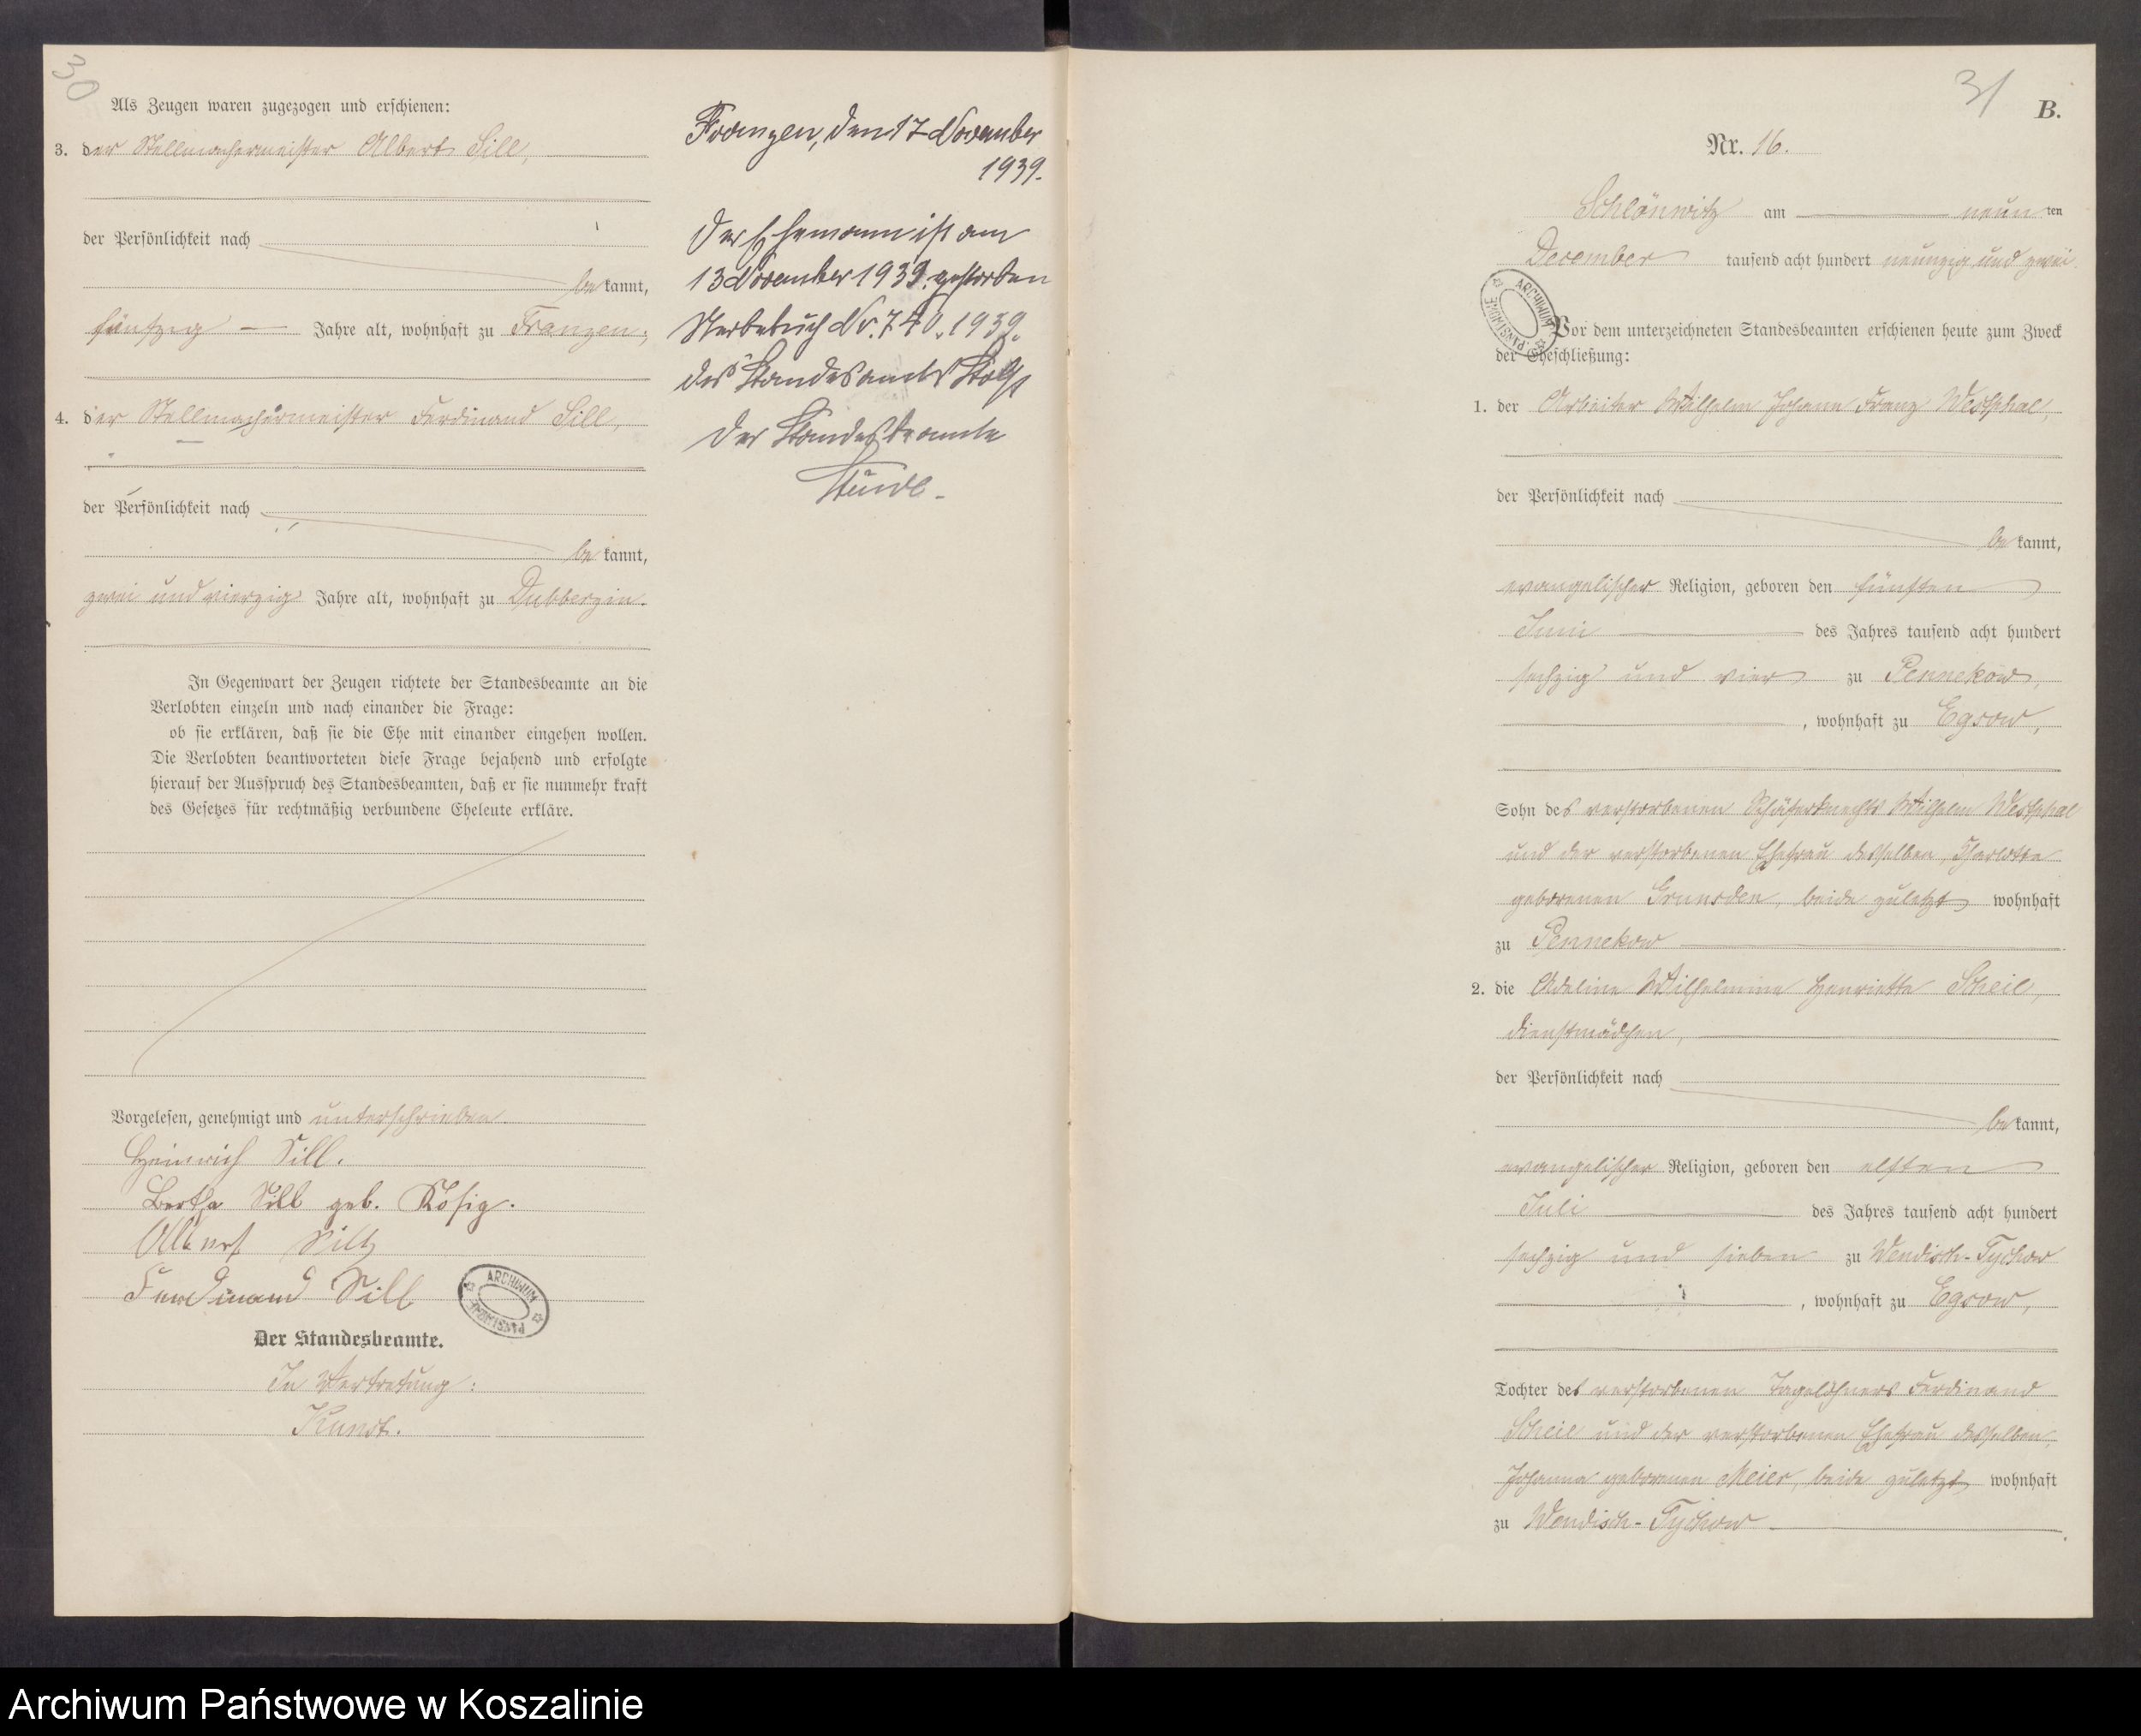 30
Als Zeugen waren zugezogen und erschienen:
3. der Stellmachermeister Albert Sill,
der Persönlichkeit nach
be kannt,
fünfzig — Jahre alt, wohnhaft zu Franzen;
4. der Stellmachermeister Ferdinand Sill,
der Persönlichkeit nach
be kannt,
zwei und vierzig Jahre alt, wohnhaft zu Dubberzin.
In Gegenwart der Zeugen richtete der Standesbeamte an die
Verlobten einzeln und nach einander die Frage:
ob sie erklären, daß sie die Ehe mit einander eingehen wollen.
Die Verlobten beantworteten diese Frage bejahend und erfolgte
hierauf der Ausspruch des Standesbeamten, daß er sie nunmehr kraft
des Gesetzes für rechtmäßig verbundene Eheleute erkläre.
Vorgelesen, genehmigt und unterschrieben.
Heinrich Sill.
Bertha Sill geb. Kösig.
Albert Sill
Ferdinand Sill
ARCHIWUM PAŃSTWOWE
Der Standesbeamte.
In Vertretung:
Kundt.
Franzen, den 17 November
1939.
Der Ehemann ist am
13 November 1939 gestorben
Sterbebuch Nr. 740. 1939.
des Standesamts Stolp
Der Standesbeamte
31
B.
Nr. 16.
Schlönwitz am neun ten
December tausend acht hundert neunzig und zwei.
ARCHIWUM PAŃSTWOWE
Vor dem unterzeichneten Standesbeamten erschienen heute zum Zweck
der Eheschließung:
1. der Arbeiter Wilhelm Johann Franz Westphal,
der Persönlichkeit nach
be kannt,
evangelischer Religion, geboren den fünften
Juni des Jahres tausend acht hundert
sechzig und vier zu Pennekow,
, wohnhaft zu Egsow,
Sohn des verstorbenen Schäferknechts Wilhelm Westphal
und der verstorbenen Ehefrau desselben, Charlotte
geborenen beide zuletzt wohnhaft
zu Pennekow
2. die Adeline Wilhelmine Henriette Scheil,
Dienstmädchen,
der Persönlichkeit nach
be kannt,
evangelischer Religion, geboren den elften
Juli des Jahres tausend acht hundert
sechzig und sieben zu Wendisch-Tychow
, wohnhaft zu Egsow,
Tochter des verstorbenen Tagelöhners Ferdinand
Scheil und der verstorbenen Ehefrau desselben,
Johanna geborenen Meier, beide zuletzt wohnhaft
zu Wendisch-Tychow.
Archiwum Państwowe w Koszalinie